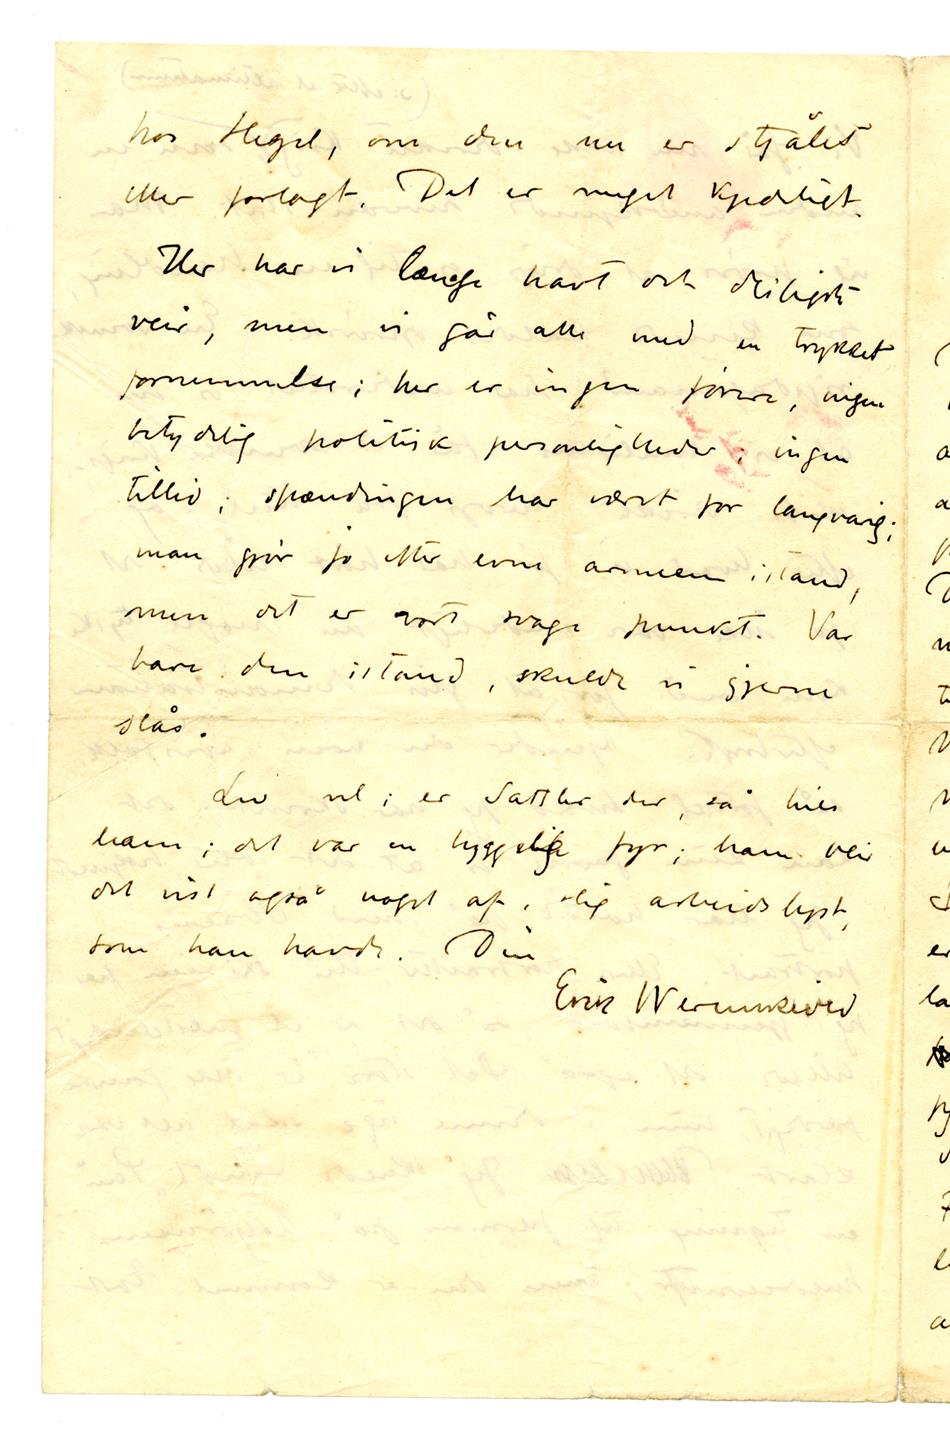 hos Hegel, om den nu er stjålet
eller forlagt. Det er meget kjedeligt.
Her har vi længe havt det deiligste
veir, men vi går alle med en trykket
fornemmelse; her er ingen førere, ingen
betydelig politisk personligheder; ingen
tillid; spændingen har været for langvarig;
man gjør jo efter evne armeen istand,
men det er vort svage punkt. Var
bare den istand, skulde vi gjerne
slås.
Lev vel; er Sattler der, så hils
ham; det var en hyggelig fyr; ham veir
det vist også noget af, slig arbeidslyst,
som han havde. Din
Erik Werenskiold